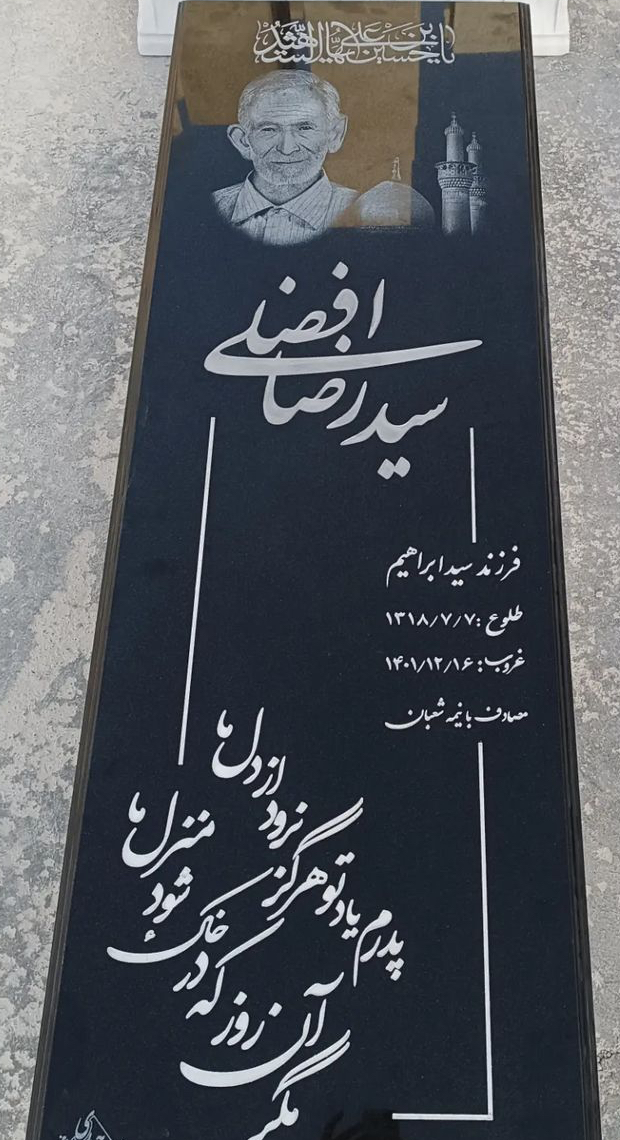 یا حسین بن علی ایها الشهید
سید رضا افضلی
فرزند سید ابراهیم
طلوع: ۱۳۱۸/۷/۷
غروب: ۱۴۰۱/۱۲/۱۶
مصادف با نیمه شعبان
پدرم یاد تو هرگز نرود از دل ما
مگر آن روز که در خاک شود منزل ما